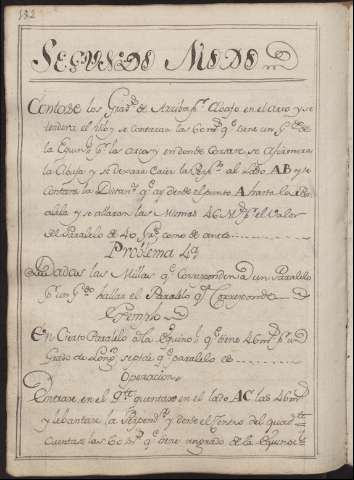 132
SEGUNDO MODO
Contase los Grad.s de Arriba p.a Abajo en el arco y se
tendera el Ylo y se contaran las 60 m.s q.e tiene un G.do de
la Equin.l p.r los arcos y en donde Cortare se Afirmara
la Aguja y se dexara Caer la Perp.r al Lado AB y se
Contara la Distan.a q.e ay desde el punto A hasta la
y se allaran las Mismas 46 M.s p.r el Valor
del Paralelo de 40 Gra.s como de antes
Problema 4.o
Dadas las Millas q.e Corresponden a un Paralelo
p.r un G.do hallar el Paralelo q.e Corresponde
Exemplo
En Cierto Paralelo a la Equino.l q.e tiene 46 m.s p.r un
Grado de Lon.g se pide q.e paralelo es
Operacion
Entrase en el Q.te quentase en el lado AC las 46 m.s
y lebantare la Perpend.r y desde el Sentro del quad.te
Cuentase las 60 M.s q.e tiene un grado de la Equinoc.l